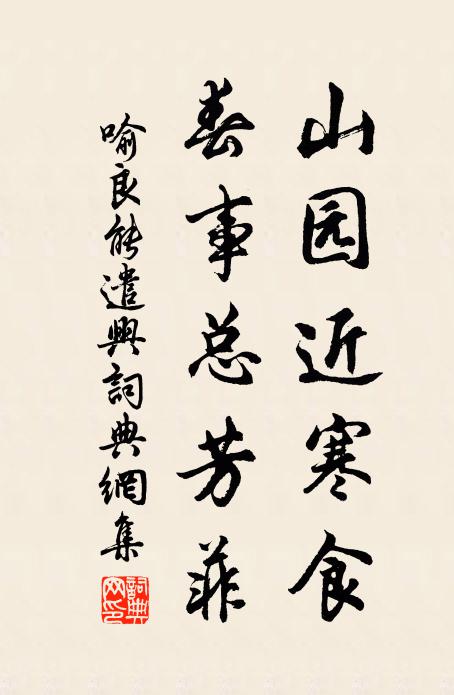 山园近寒食
春事总芳菲
喻良能遣興詞典網集
詞典网印